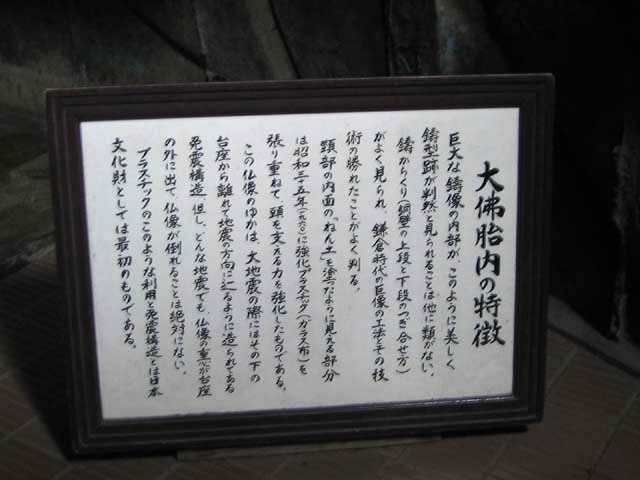 大佛胎内の特徴
巨大な鋳像の内部が、このように美しく
鋳型跡が判然と見られることは他に類がない。
鋳からくり(銅壁の上段と下段のつぎ合せ方)
がよく見られ、鎌倉時代の巨像の工法とその技
術の勝れたことがよく判る。
頸部の内面の「ねん土」を塗ったように見える部分
は昭和三十五年(一九六〇)に強化プラスチック(ガラス布)を
張り重ねて、頭を支える力を強化したものである。
この仏像のゆかは、大地震の際にはその下の
台座から離れて地震の方向に辷るように造られてある
免震構造、但し、どんな地震でも、仏像の重心が台座
の外に出て、仏像が倒れることは絶対にない。
プラスチックのこのような利用と免震構造とは日本
文化財としては最初のものである。